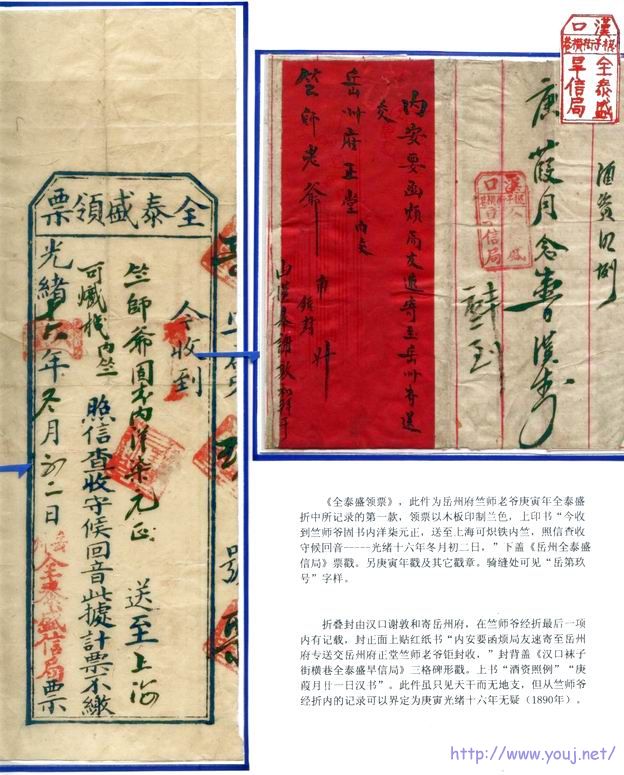 全泰盛領票
今收到
竺師爺固封内洋柒元正 送至上海
可熾栈内竺
照信查收守候回音此據計票不繳
光緒十六年冬月初二日
全泰盛信局票
漢口
袜子街横巷
全泰盛
早信局
酒資照例
庚葭月念壹漢書
漢口
信局
内安要函煩局友速寄至岳州府专送
交
岳州府正堂
竺師老爺
《全泰盛领票》，此件为岳州府竺师老爷庚寅年全泰盛
折中所记录的第一款，领票以木板印制兰色，上印书“今收
到竺师爷固书内洋柒元正，送至上海可炽铁内竺，照信查收
守候回音-----光绪十六年冬月初二日，”下盖《岳州全泰盛
信局》票戳。另庚寅年戳及其它戳章。骑缝处可见“岳第玖
号”字样。
折叠封由汉口谢敦和寄岳州府，在竺师爷经折最后一项
内有记载，封正面上贴红纸书“内安要函烦局友速寄至岳州
府专送交岳州府正堂竺师老爷钜封收，”封背盖《汉口袜子
街横巷全泰盛早信局》三格碑形戳。上书“酒资照例”“庚
葭月廿一日汉书”。此件虽只见天干而无地支，但从竺师爷
经折内的记录可以界定为庚寅光绪十六年无疑（1890年）。
http://www.youj.net/